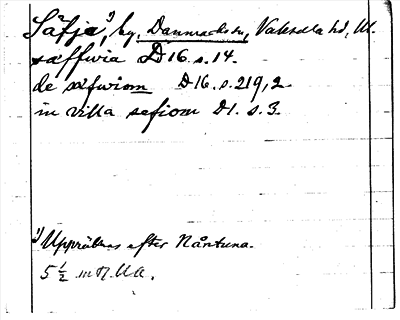 Säfja,¹⁾ by, Danmarks sn, Vaksala hd, Ul.
sæffwia D 16. s. 14.
de sæfwiom D 16. s. 219, 2
in villa sefiom D 1. s. 3.
¹⁾ Uppräknas efter Nåntuna.
5 ½ m Ö. UA.